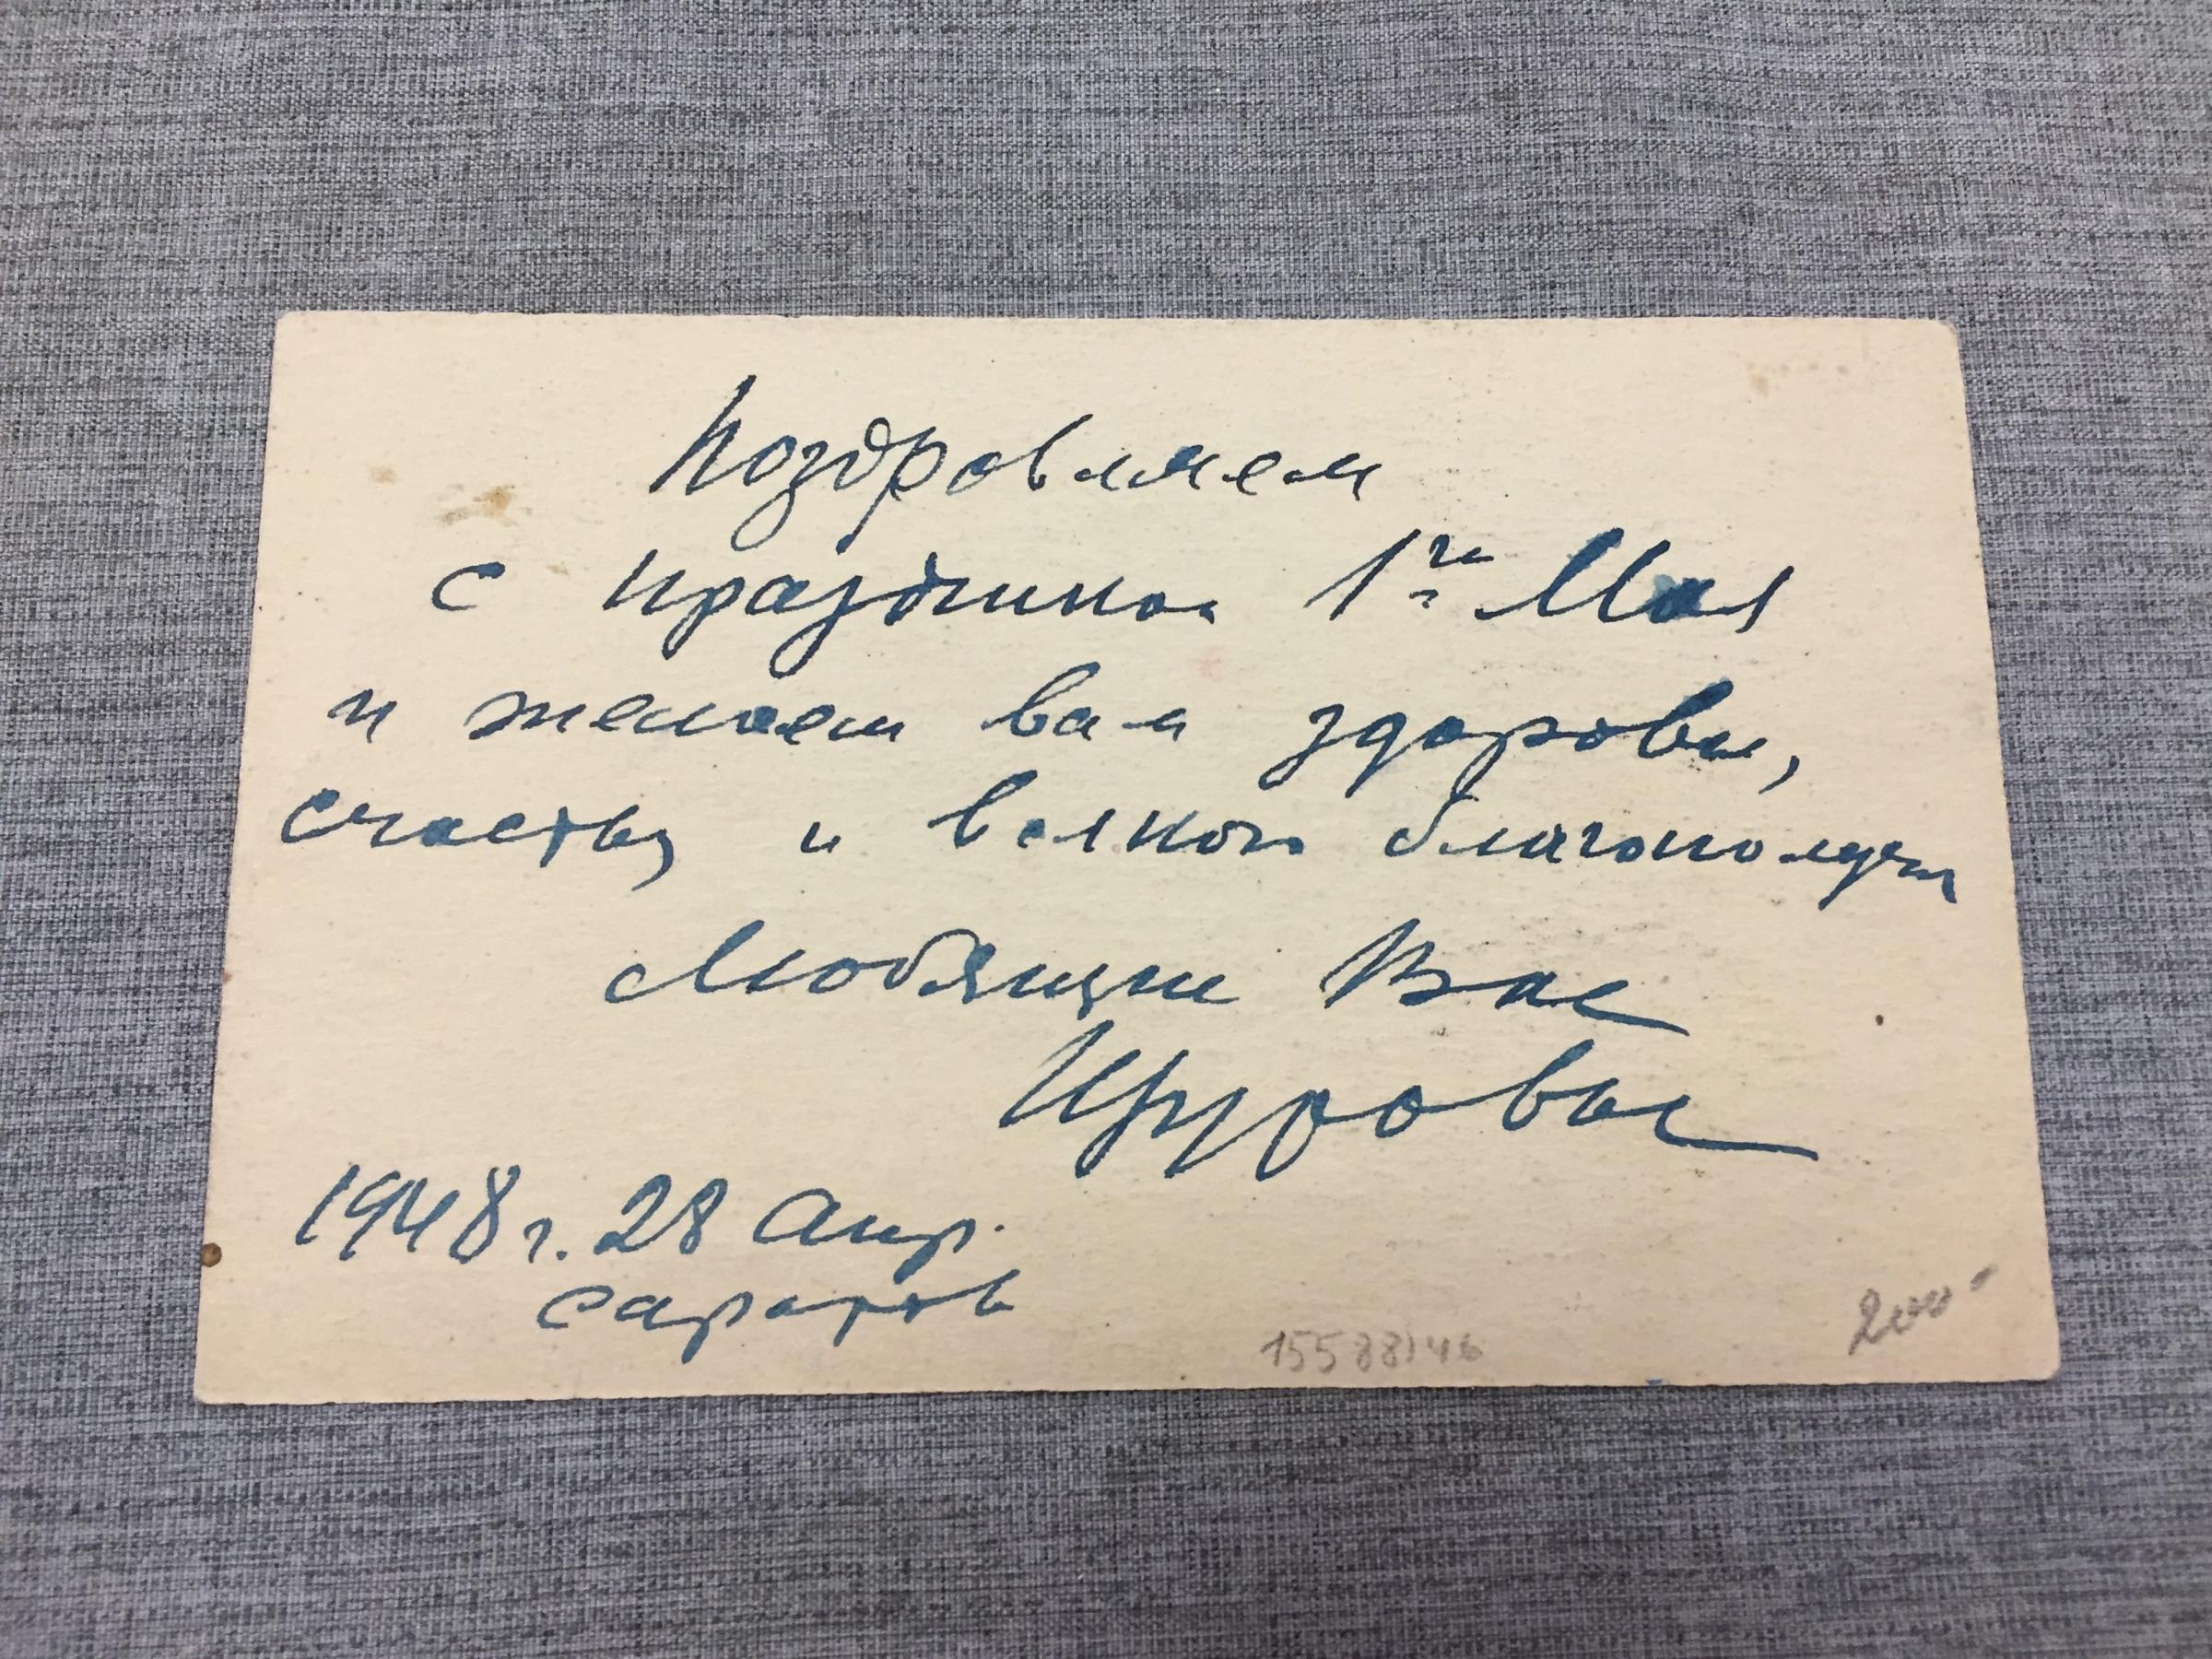 Поздровляем
с праздником 1го Мая
и желаем вам здоровья,
счастья и всякого благополучия
Любящие Вас
1948 г. 28 Апр.
Саратов
15588)46
200-